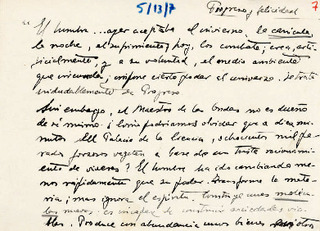 5/13/7
Progreso y felicidad
7
"El hombre ... ayer aceptaba el universo. La canícula,
la noche, el sufrimiento; hoy, los combate; crea, arti-
ficialmente, y a su voluntad, el medio ambiente
que ; cierto poder al universo. Se trata
indudablemente de Progreso
Sin embargo, el Maestro de las Ondas no es dueño
de sí mismo. ¿Cómo podríamos olvidar que a diez mi-
nutos del Palacio de la Ciencia, ochocientos mil pa-
rados forzosos vegetan a base de un triste racionami-
ento de víveres? El hombre ha ido cambiando me-
nos rápidamente que su poder. Transforma la mate-
ria; mas ignora el espíritu. unas
nuevas; es incapaz de construir sociedades via-
bles. Produce con abundancia unos bienes